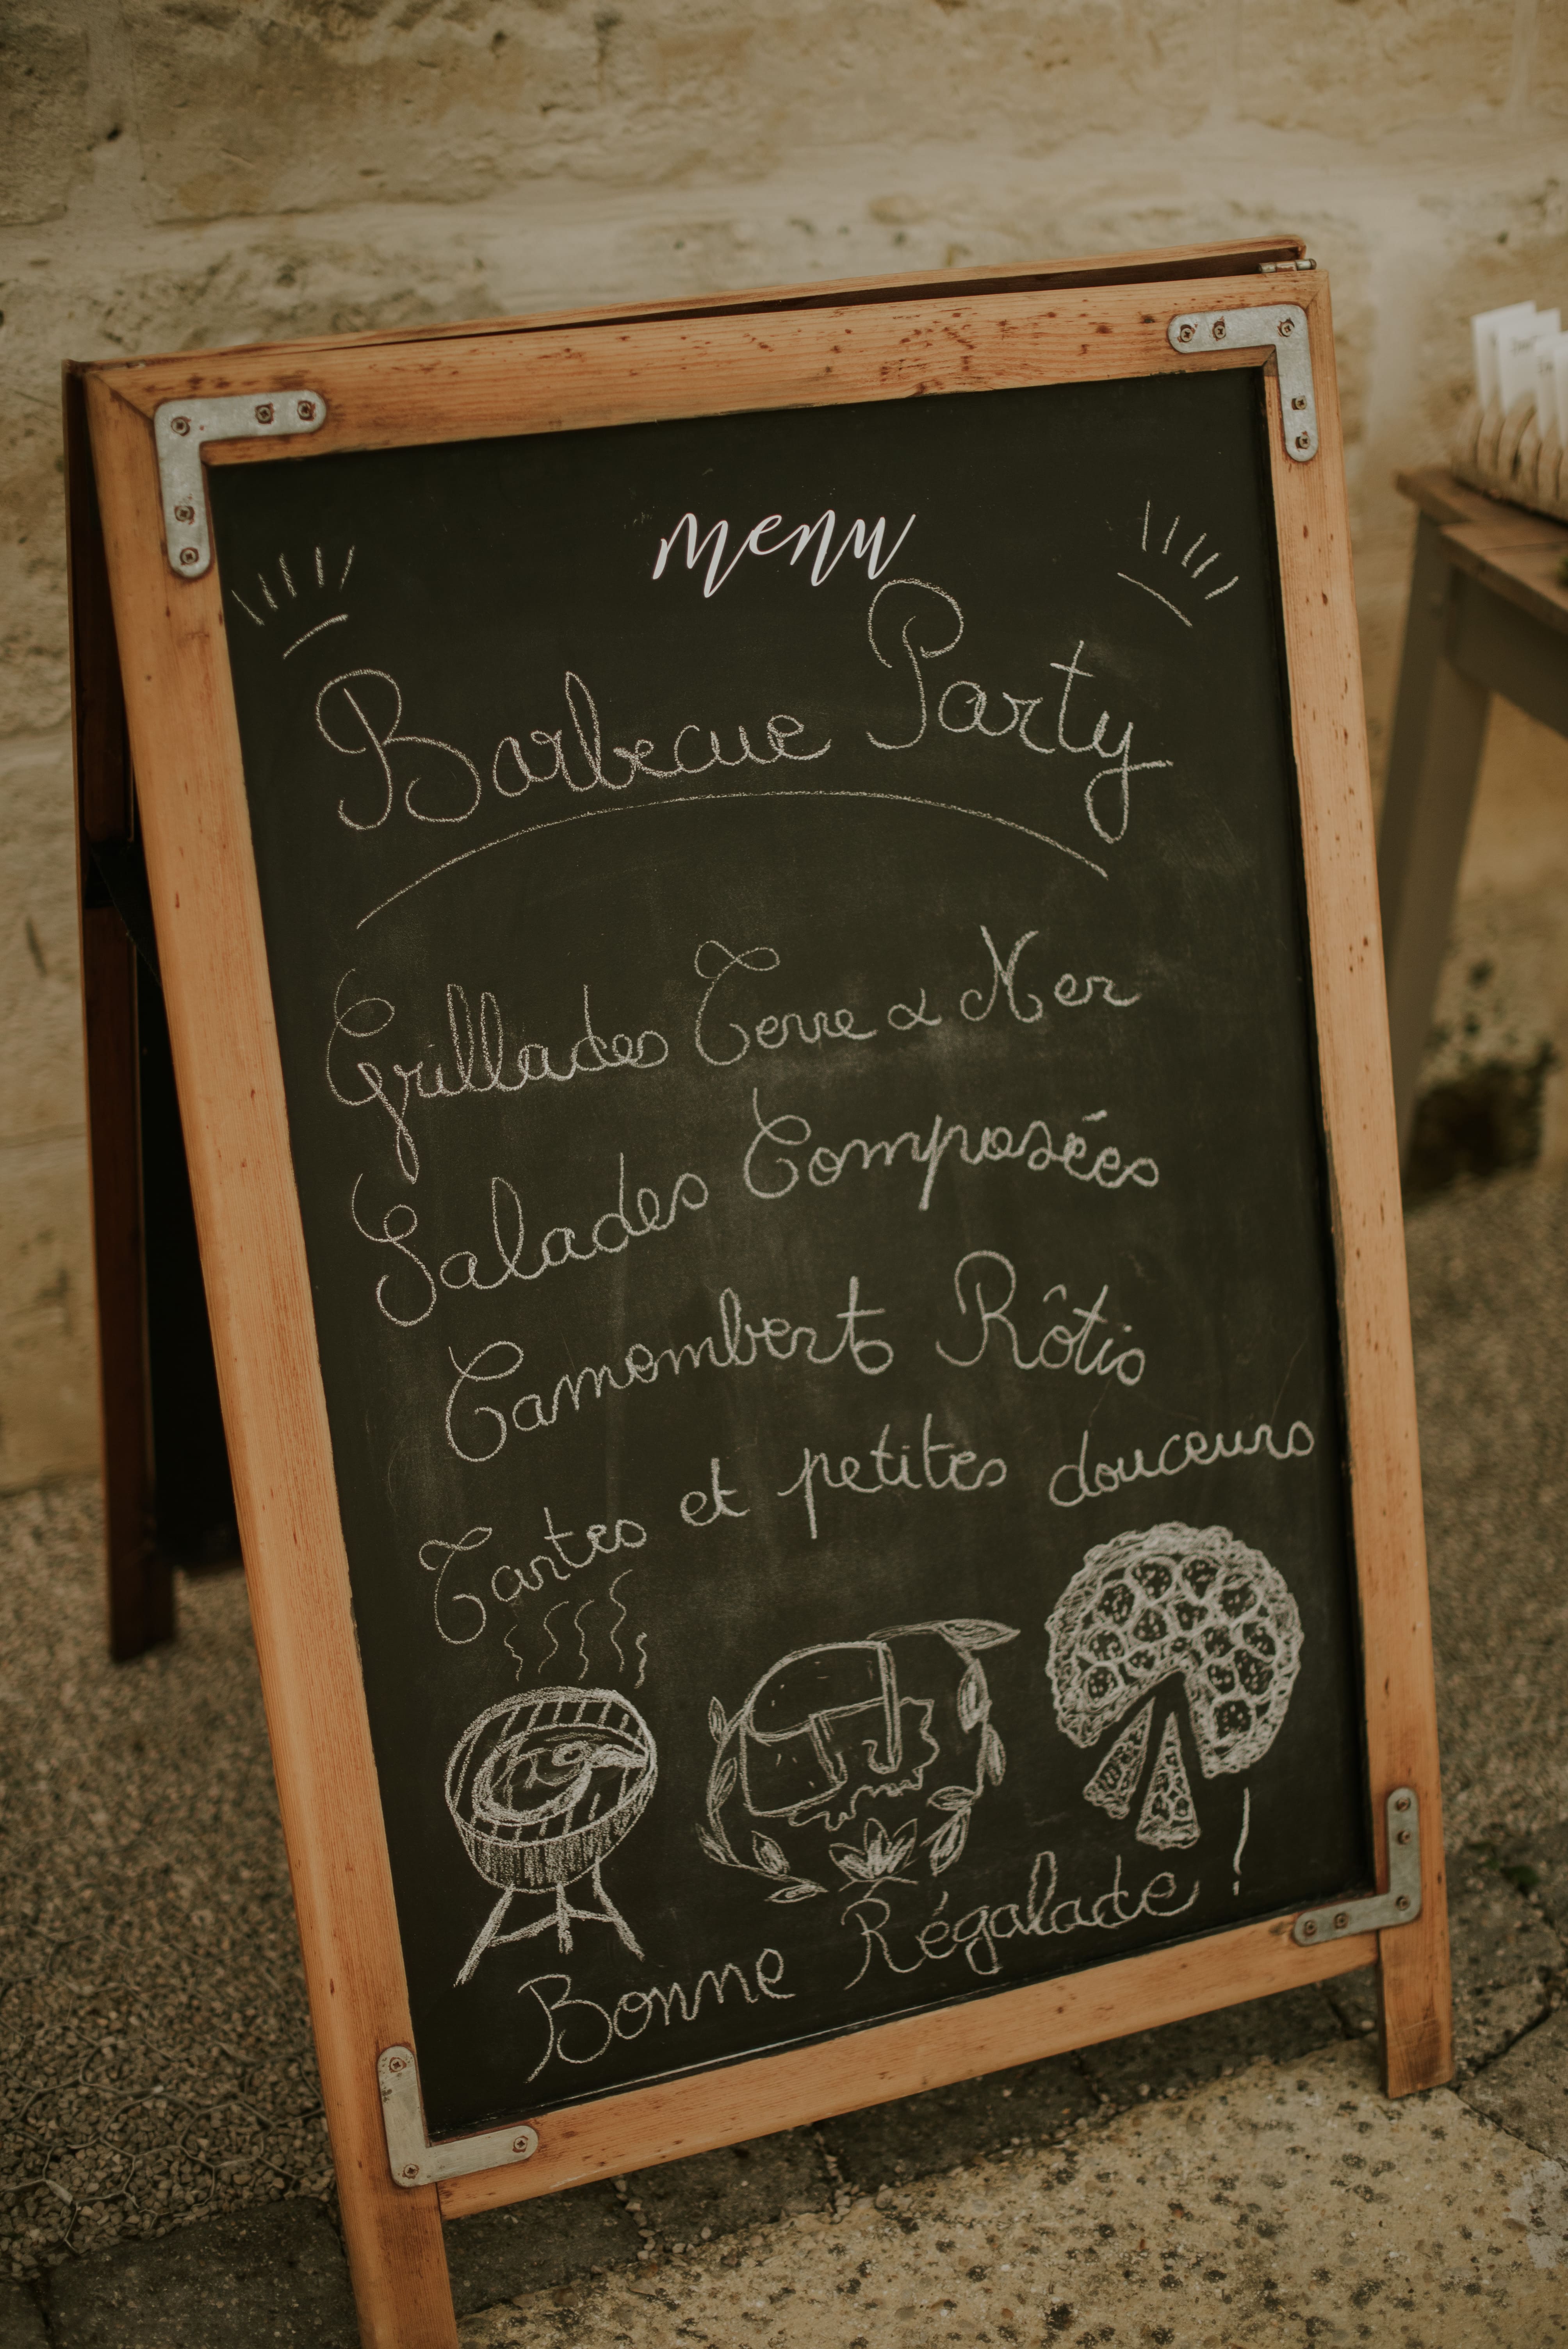 menu
Barbecue Party
Grillades Terre & Mer
Salades Composées
Camembert Rôtis
Tartes et petites douceurs
Bonne Régalade !